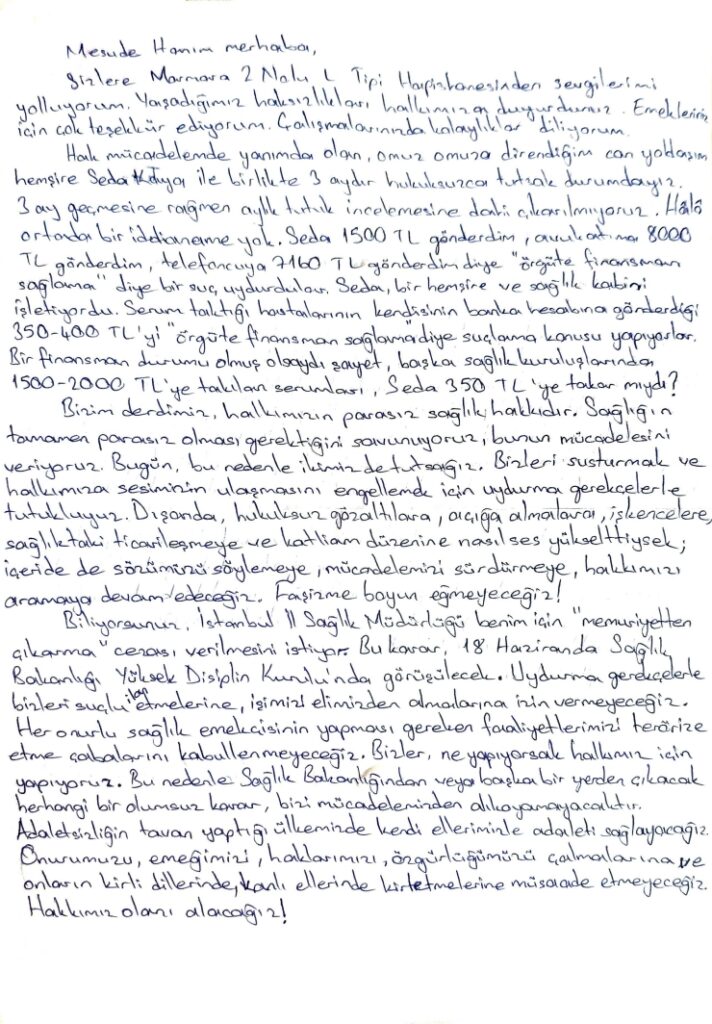 Mesude Hanım merhaba,
Sizlere Marmara 2 Nolu L Tipi Hapishanesinden sevgilerimi
yolluyorum. Yaşadığımız haksızlıkları halkımıza duyurdunuz. Emekleriniz
için çok teşekkür ediyorum. Çalışmalarınızda kolaylıklar diliyorum.
Hak mücadelemde yanımda olan, omuz omuza direndiğim can yoldaşım
hemşire Seda Kaya ile birlikte 3 aydır hukuksuzca tutsak durumdayız.
3 ay geçmesine rağmen aylık tutuk incelemesine dahi çıkarılmıyoruz. Hâlâ
ortada bir iddianame yok. Seda 1500 TL gönderdim, avukatıma 8000
TL gönderdim, telefoncuya 7160 TL gönderdim diye "örgüte finansman
sağlama" diye bir suç uydurdular. Seda, bir hemşire ve sağlık kabini
işletiyordu. Serum taktığı hastalarının kendisinin banka hesabına gönderdiği
350-400 TL'yi "örgüte finansman sağlama" diye suçlama konusu yapıyorlar.
Bir finansman durumu olmuş olsaydı şayet, başka sağlık kuruluşlarında
1500-2000 TL'ye takılan serumları, Seda 350 TL'ye takar mıydı?
Bizim derdimiz, halkımızın parasız sağlık hakkıdır. Sağlığın
tamamen parasız olması gerektiğini savunuyoruz, bunun mücadelesini
veriyoruz. Bugün, bu nedenle ikimiz de tutsağız. Bizleri susturmak ve
halkımıza sesimizin ulaşmasını engellemek için uydurma gerekçelerle
tutukluyuz. Dışarıda, hukuksuz gözaltılara, açığa almalara, işkencelere,
sağlıktaki ticarileşmeye ve katliam düzenine nasıl ses yükselttiysek;
içeride de sözümüzü söylemeye, mücadelemizi sürdürmeye, hakkımızı
aramaya devam edeceğiz. Faşizme boyun eğmeyeceğiz!
Biliyorsunuz, İstanbul İl Sağlık Müdürlüğü benim için "memuriyetten
çıkarma" cezası verilmesini istiyor. Bu karar, 18 Haziranda Sağlık
Bakanlığı Yüksek Disiplin Kurulu'nda görüşülecek. Uydurma gerekçelerle
bizleri suçlu ilan etmelerine, işimizi elimizden almalarına izin vermeyeceğiz.
Her onurlu sağlık emekçisinin yapması gereken faaliyetlerimizi terörize
etme çabalarını kabullenmeyeceğiz. Bizler, ne yapıyorsak halkımız için
yapıyoruz. Bu nedenle Sağlık Bakanlığından veya başka bir yerden çıkacak
herhangi bir olumsuz karar, bizi mücadelemizden alıkoyamayacaktır.
Adaletsizliğin tavan yaptığı ülkemizde kendi ellerimizle adaleti sağlayacağız.
Onurumuzu, emeğimizi, haklarımızı, özgürlüğümüzü çalmalarına ve
onların kirli dillerinde, kanlı ellerinde kirletmelerine müsaade etmeyeceğiz.
Hakkımız olanı alacağız!